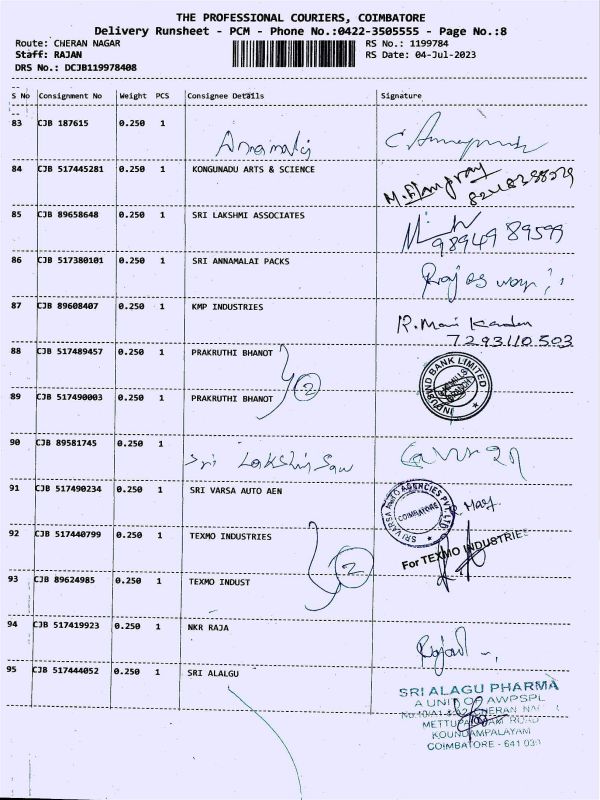 THE PROFESSIONAL COURIERS, COIMBATORE
Delivery Runsheet - PCM - Phone No.:0422-3505555 - Page No.:8
Route: CHERAN NAGAR RS No.: 1199784
Staff: RAJAN RS Date: 04-Jul-2023
DRS No.: DCJB119978408
S No Consignment No Weight PCS Consignee Details Signature
83 CJB 187615 0.250 1
84 CJB 517445281 0.250 1 KONGUNADU ARTS & SCIENCE
85 CJB 89658648 0.250 1 SRI LAKSHMI ASSOCIATES
98949 89599
86 CJB 517380101 0.250 1 SRI ANNAMALAI PACKS
87 CJB 89608407 0.250 1 KMP INDUSTRIES
7293110503
88 CJB 517489457 0.250 1 PRAKRUTHI BHANOT
2
INDUSIND BANK LIMITED
89 CJB 517490003 0.250 1 PRAKRUTHI BHANOT
90 CJB 89581745 0.250 1
Sri
91 CJB 517490234 0.250 1 SRI VARSA AUTO AEN
SRI VARSA AUTO AGENCIES PVT. LTD.
COIMBATORE
92 CJB 517440799 0.250 1 TEXMO INDUSTRIES
For TEXMO INDUSTRIES
2
93 CJB 89624985 0.250 1 TEXMO INDUST
94 CJB 517419923 0.250 1 NKR RAJA
95 CJB 517444052 0.250 1 SRI ALALGU
SRI ALAGU PHARMA
A UNIT OF AWPSPL
KOUNDAMPALAYAM
COIMBATORE - 641 030